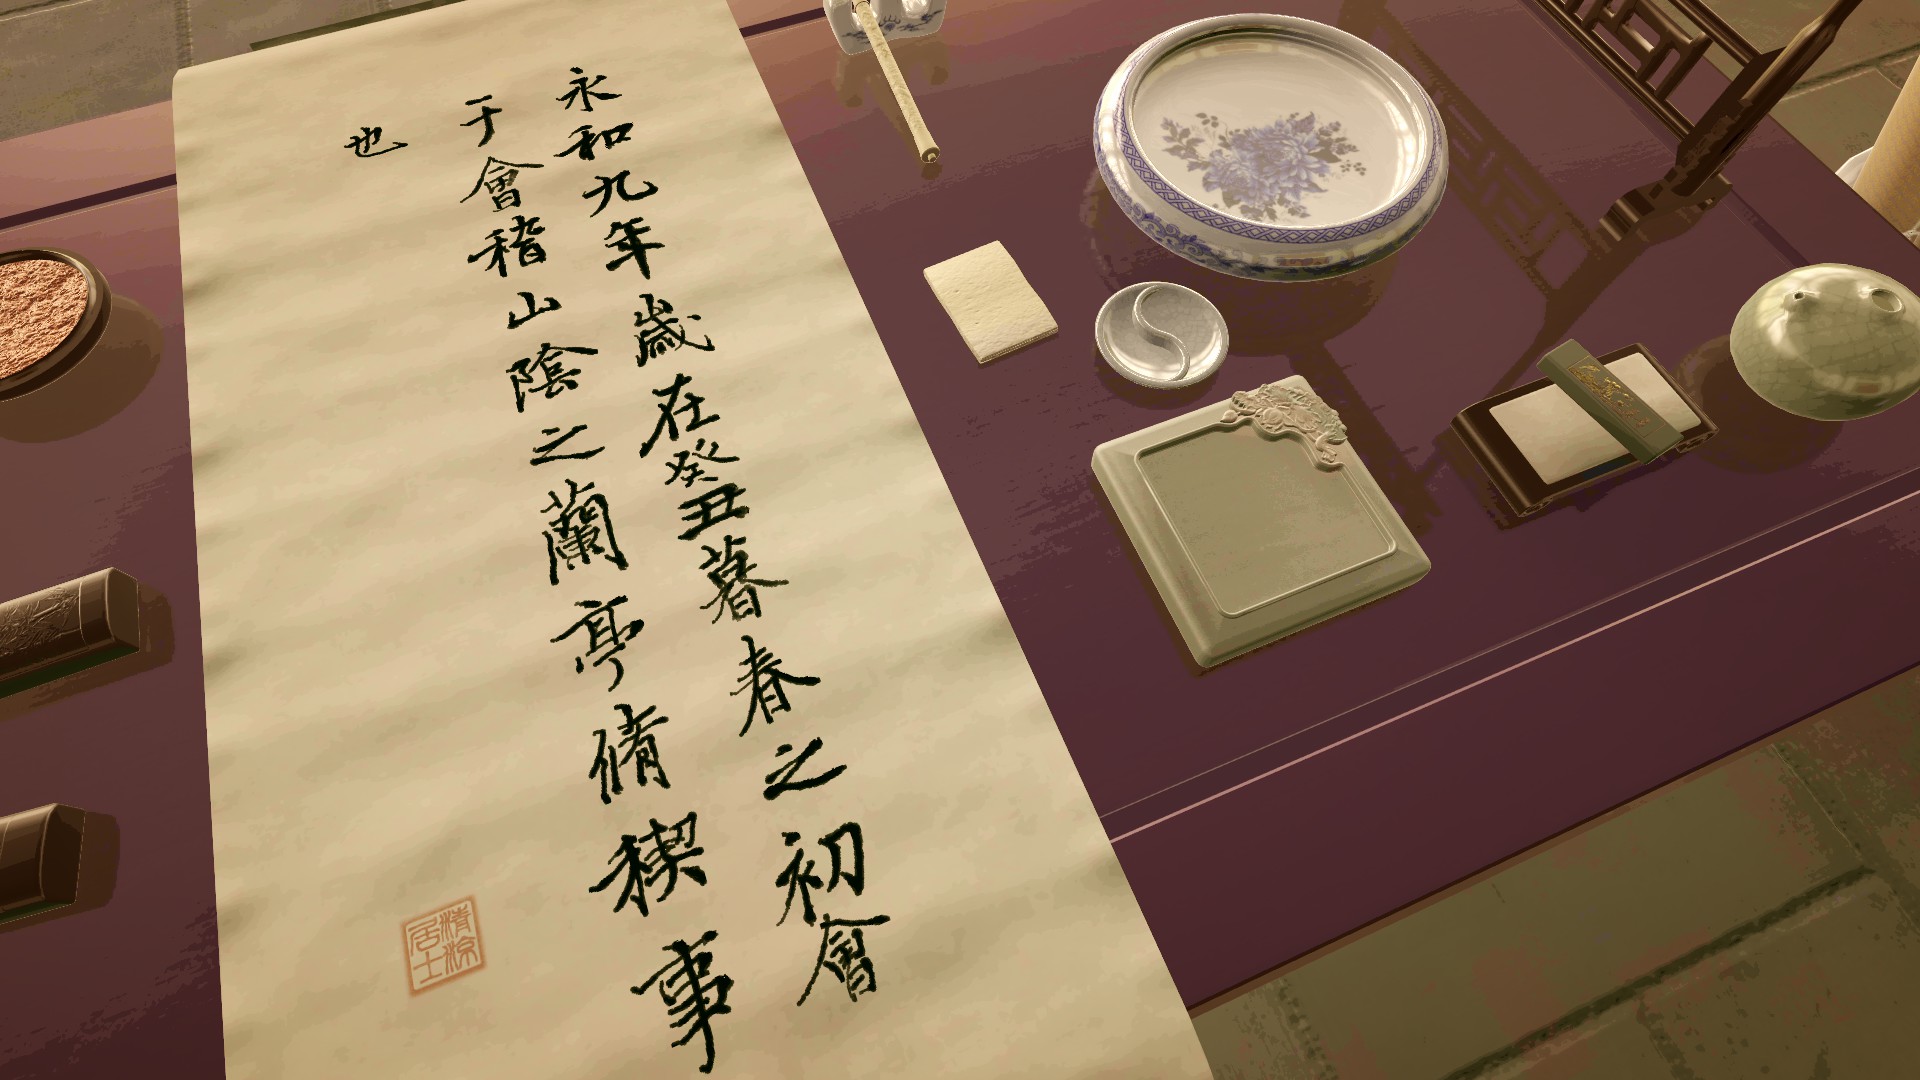 永和九年歲在癸丑暮春之初會
于會稽山陰之蘭亭脩稧事
也
清涼居士